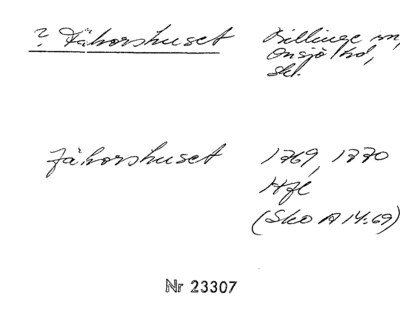 ? Fähorshuset Billinge sn,
Onsjö hd,
Sk.
Fähorshuset 1769, 1770
Hfl
(Sko A 14:69)
Nr 23307